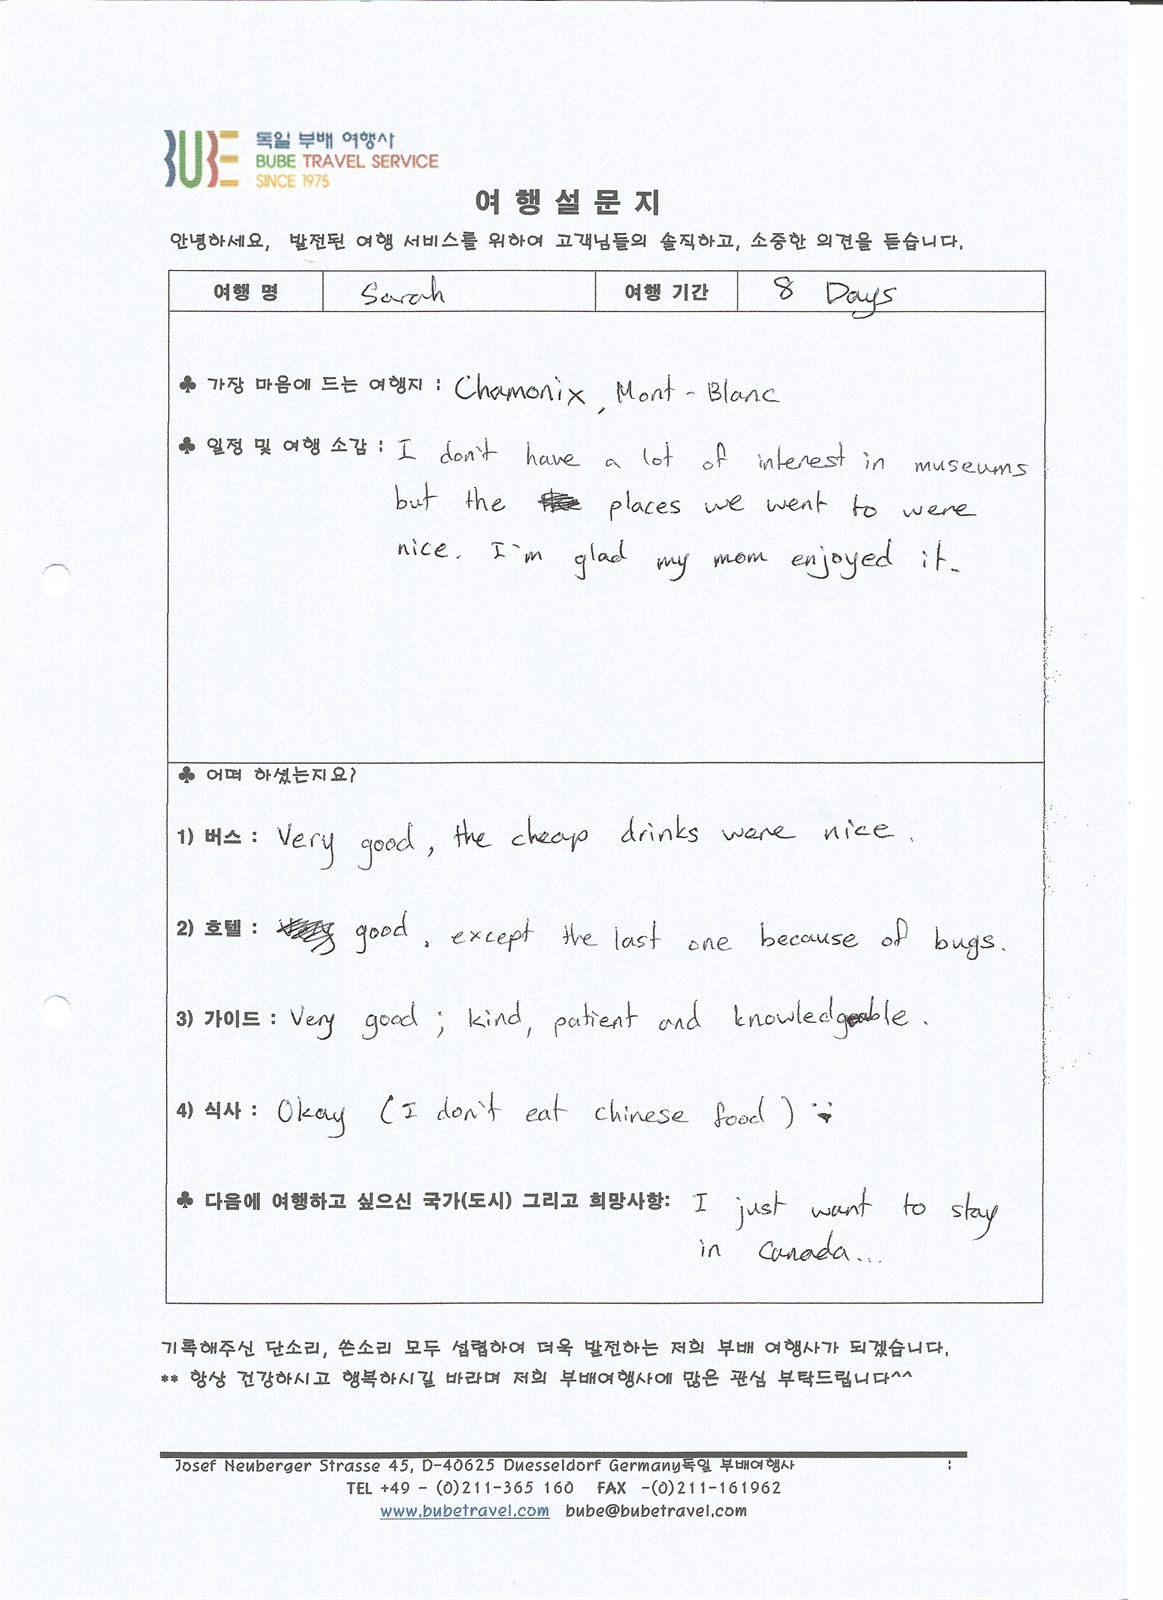 BUBE 독일 부배 여행사
BUBE TRAVEL SERVICE
SINCE 1975
여 행 설 문 지
안녕하세요, 발전된 여행 서비스를 위하여 고객님들의 솔직하고, 소중한 의견을 듣습니다.
여행 명 Sarah 여행 기간 8 Days
♣ 가장 마음에 드는 여행지 : Chamonix, Mont-Blanc
♣ 일정 및 여행 소감 : I don't have a lot of interest in museums
but the places we went to were
nice. I'm glad my mom enjoyed it.
♣ 어떠 하셨는지요?
1) 버스 : Very good, the cheap drinks were nice.
2) 호텔 : good, except the last one because of bugs.
3) 가이드 : Very good; kind, patient and knowledgeable.
4) 식사 : Okay (I don't eat chinese food)
♣ 다음에 여행하고 싶으신 국가(도시) 그리고 희망사항: I just want to stay
in Canada...
기록해주신 단소리, 쓴소리 모두 섭렵하여 더욱 발전하는 저희 부배 여행사가 되겠습니다.
** 항상 건강하시고 행복하시길 바라며 저희 부배여행사에 많은 관심 부탁드립니다^^
Josef Neuberger Strasse 45, D-40625 Duesseldorf Germany독일 부배여행사 :
TEL +49 - (0)211-365 160 FAX -(0)211-161962
www.bubetravel.com bube@bubetravel.com